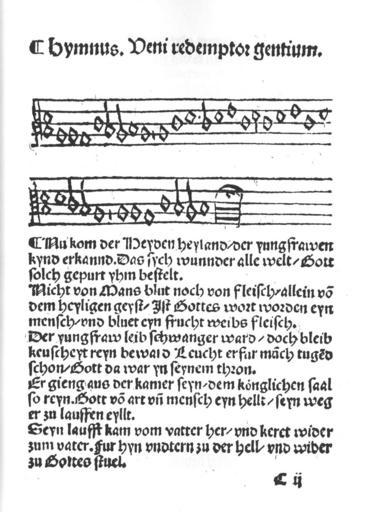 ❡ Hymnus. Veni redemptor gentium.
❡ Nu kom der Heyden heyland/der yungfrawen
kynd erkannd. Das sych wunnder alle welt/Gott
solch gepurt yhm bestelt.
Nicht von Mans blut noch von fleisch/allein võ
dem heyligen geyst/Ist Gottes wort worden eyn
mensch/vnd bluet eyn frucht weibs fleisch.
Der yungfraw leib schwanger ward/doch bleib
keuscheyt reyn beward Leucht erfur mãch tugẽd
schon/Gott da war yn seynem thron.
Er gieng aus der kamer seyn/dem könglichen saal
so reyn. Gott võ art vñ mensch eyn hellt/seyn weg
er zu lauffen eyllt.
Seyn laufft kam vom vatter her/vnd keret wider
zum vater. Fur hyn vndtern zu der hell/vnd wider
zu Gottes stuel.
C ij